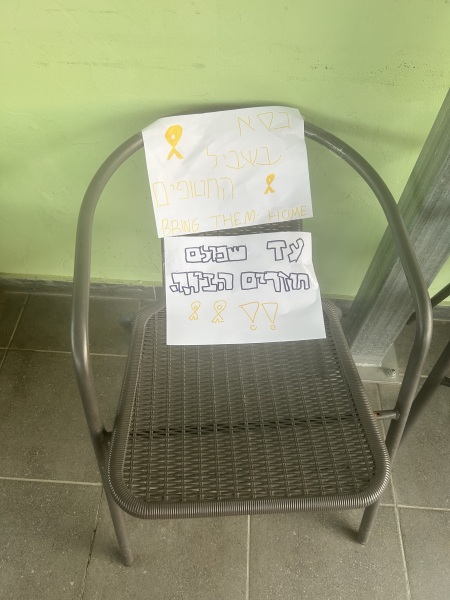 כסא
בשביל
החטופים
BRING THEM HOME
עד שכולם
חוזרים הביתה
!!